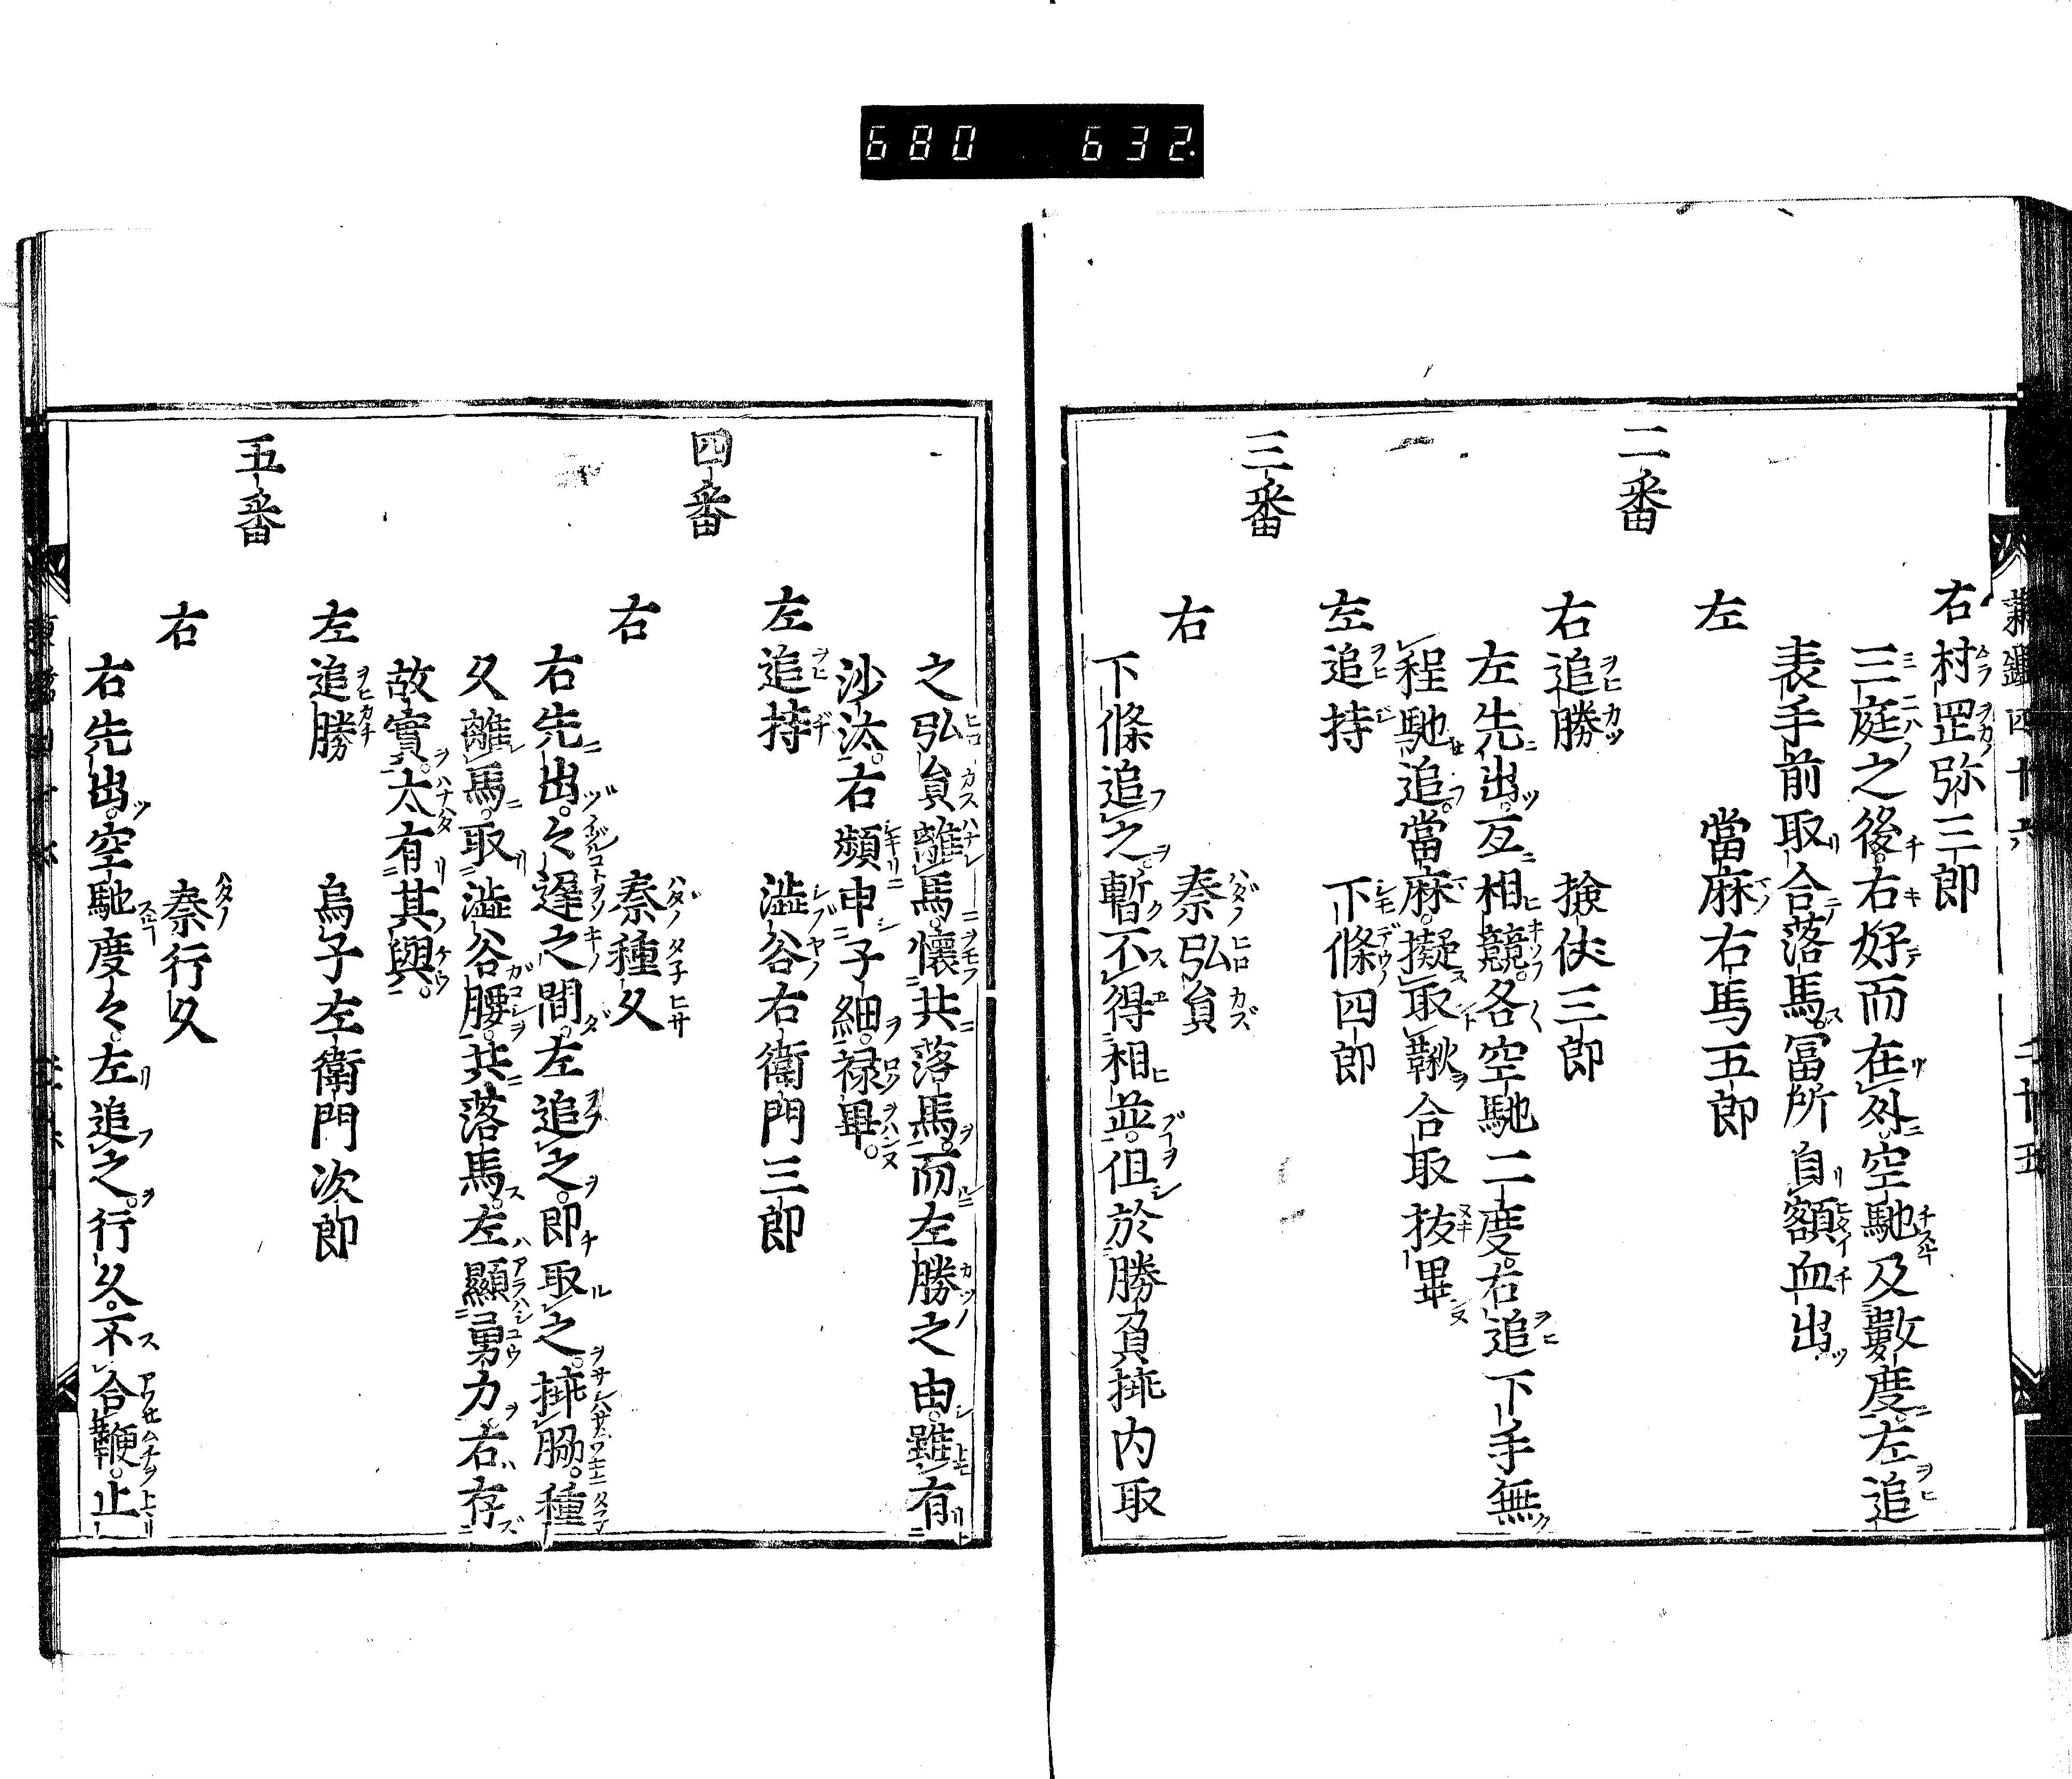 680 632.
右村罡弥三郎
三庭之後。右好而在外。空馳及數度。左追
表手前取合落馬。當所自額血出
左 當麻右馬五郎
二番
右追勝 撿使三郎
左先出。互相競。各空馳二度。右追下手無
程馳追。當麻。擬取鞦合取拔畢
左追持 下條四郎
三番
右 秦弘員
下條追之。暫不得相並。但於勝負埓内取
之弘員離馬。懷共落馬。而左勝之由。雖有
沙汰。右頻申子細。禄畢。
左追持 澁谷右衛門三郎
四番
右 秦種久
右先出。々遅之間。左追之。即取之。埓脇。種
久離馬。取澁谷腰。共落馬。左顯勇力右存
故實。太有其興。
左追勝 烏子左衛門次郎
五番
右 秦行久
右先出。空馳度々。左追之。行久。不合鞭。止